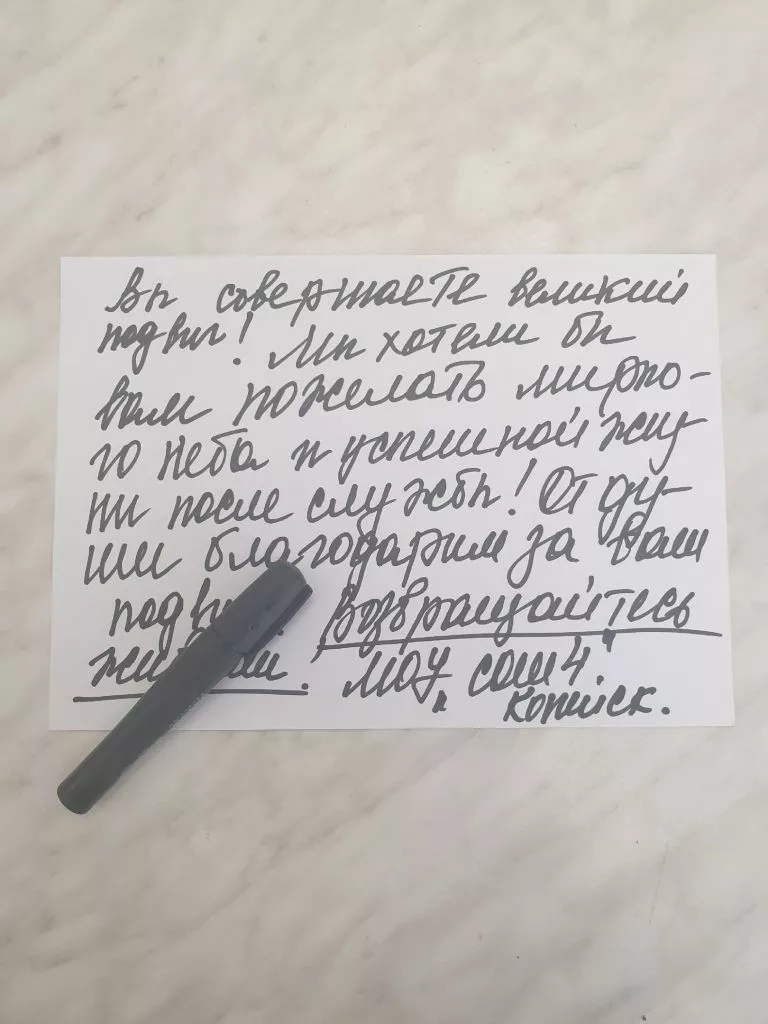 Вы совершаете великий
подвиг! Мы хотели бы
вам пожелать мирно-
го неба и успешной жиз
ни после службы! От ду-
ши благодарим за ваш
Возвращайтесь
МОУ "СОШ 4."
Копейск.